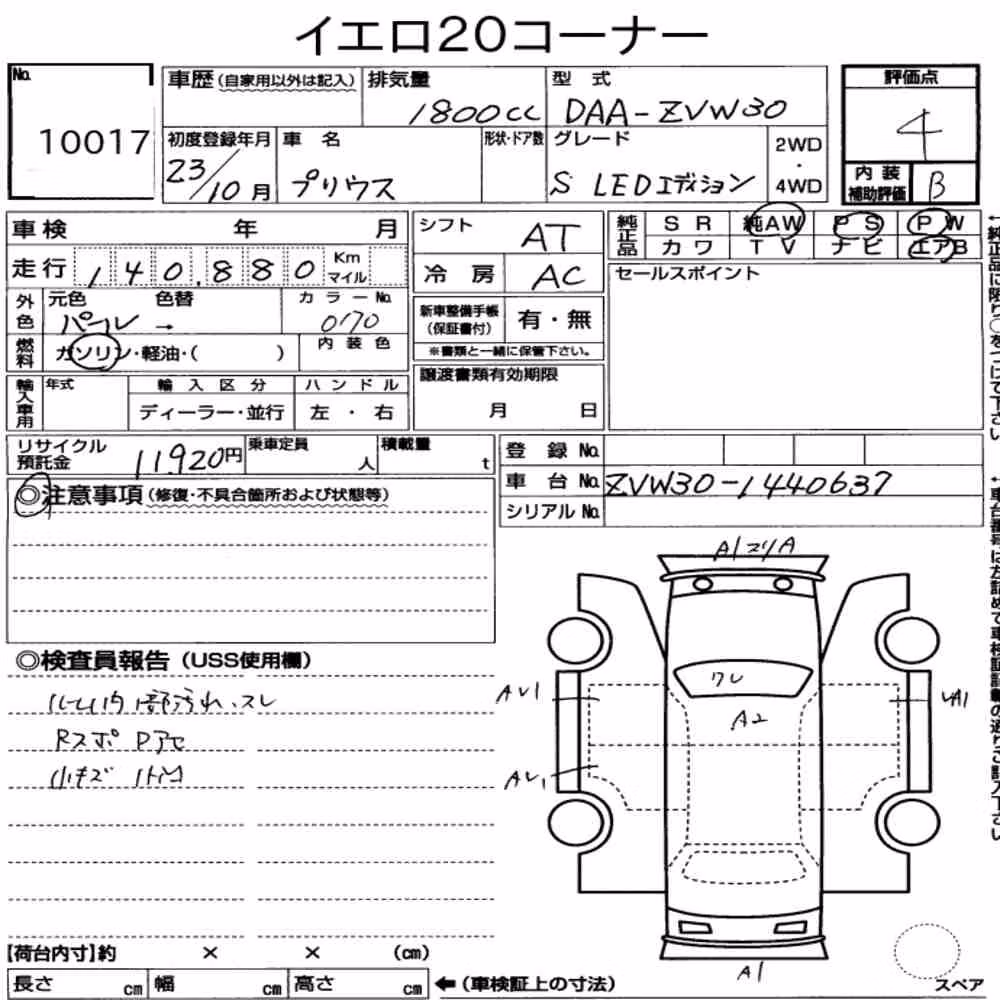 イエロ20コーナー
No.
10017
車歴(自家用以外は記入)
排気量
1800cc
型 式
DAA-ZVW30
評価点
4
内装補助評価
B
初度登録年月
23/10月
車 名
プリウス
形状・ドア数
グレード
S LEDエディション
2WD
・
4WD
車検 年 月
走行 140,880 Km マイル
外色
元色 色替
パール →
カラーNo.
070
燃料
ガソリン・軽油・( )
内装色
輸入車用
年式
輸入区分
ディーラー・並行
ハンドル
左・右
シフト
AT
冷 房
AC
新車整備手帳
(保証書付)
有・無
※書類と一緒に保管下さい。
譲渡書類有効期限
月 日
純正品
SR 純AW PS PW
カワ TV ナビ エアB
セールスポイント
リサイクル
預託金
11920円
乗車定員
人
積載量
t
登 録 No.
車 台 No.
ZVW30-1440637
シリアル No.
◎注意事項(修復・不具合箇所および状態等)
◎検査員報告(USS使用欄)
汚れ、スレ
小キズ
A
ワレ
A2
A1
【荷台内寸】約 × × (cm)
長さ cm
幅 cm
高さ cm
←(車検証上の寸法)
スペア
←純正品に限り○をつけて下さい